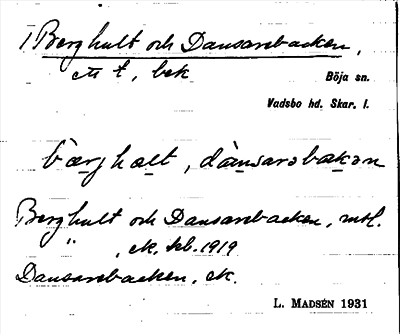 1 Berghult och Dansarebacken,
ett t, bek
Böja sn.
Vadsbo hd. Skar. l.
bærghalt, dànsarəbakən
Berghult och Dansarebacken, mtl.
" , ek. kb. 1919
Dansarebacken, ek.
L. MADSÉN 1931